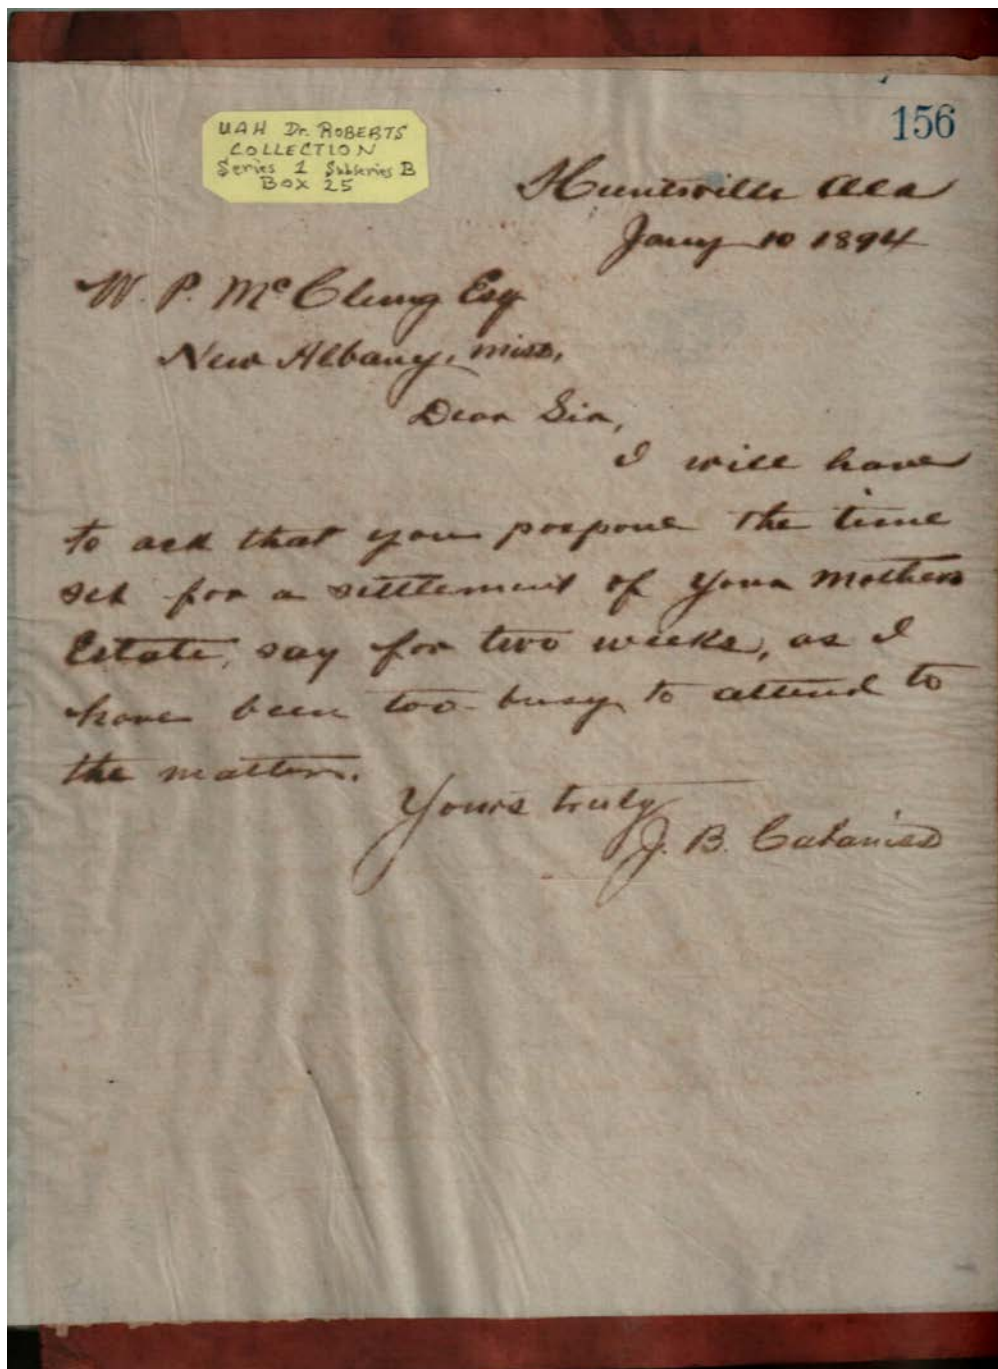 156
UAH Dr. ROBERTS
COLLECTION
Series 1 Subseries B
Box 25
Huntsville Ala
Jany 10 1894
W. P. McClung Esq
New Albany, Miss,
Dear Sir,
I will have
to ask that you pospone the time
set for a settlement of your Mothers
Estate, say for two weeks, as I
have been too busy to attend to
the matter.
Yours truly
J. B.